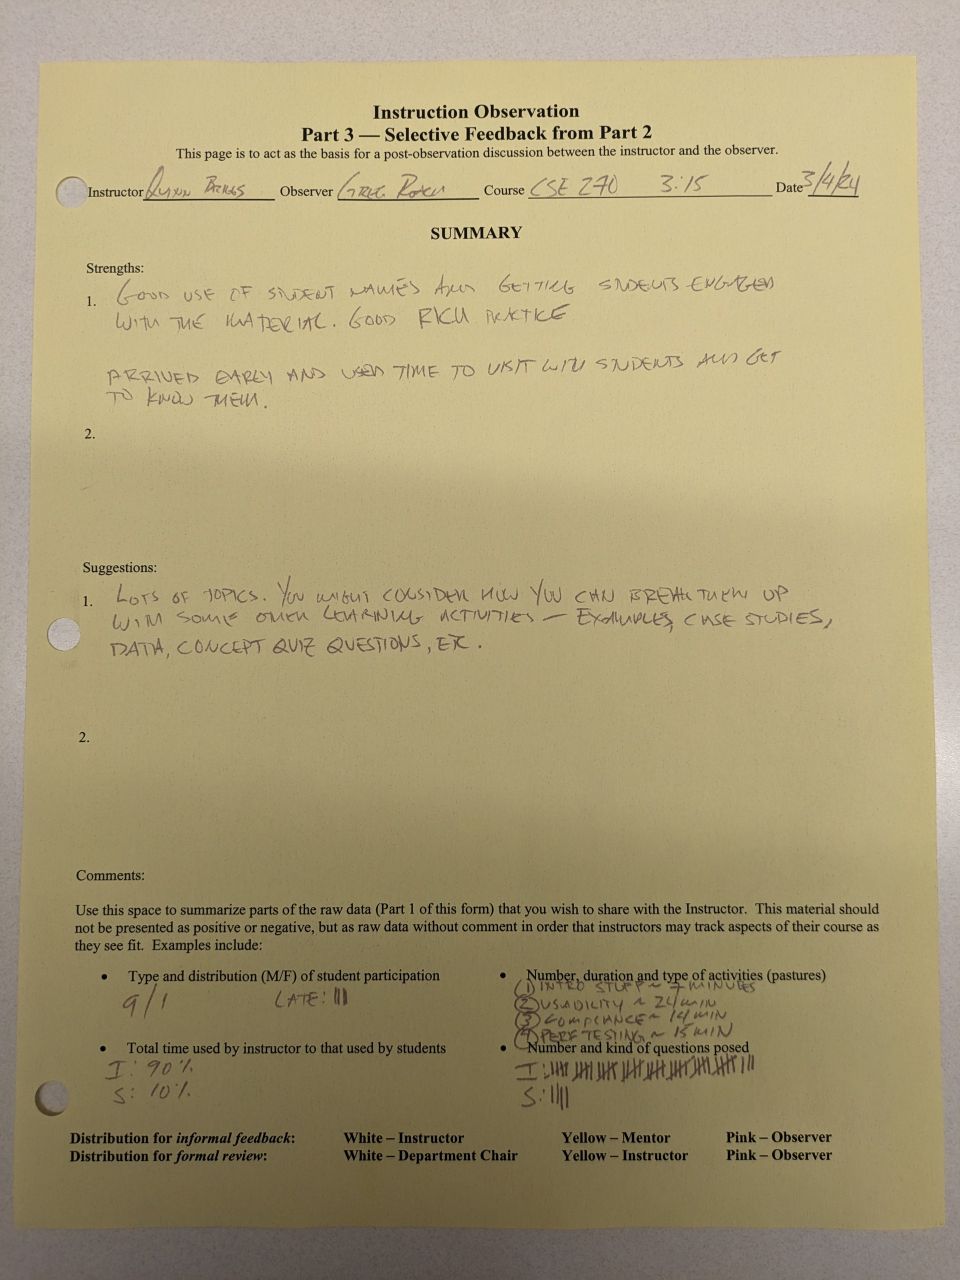 Instruction Observation
Part 3 — Selective Feedback from Part 2
This page is to act as the basis for a post-observation discussion between the instructor and the observer.
Instructor Lynn Briggs Observer Greg Course CSE 270 3:15 Date 3/4/24
SUMMARY
Strengths:
1. GOOD USE OF STUDENT NAMES AND GETTING STUDENTS ENGAGED
WITH THE MATERIAL. GOOD RICH PRACTICE
ARRIVED EARLY AND USED TIME TO VISIT WITH STUDENTS AND GET
TO KNOW THEM.
2.
Suggestions:
1. LOTS OF TOPICS. YOU MIGHT CONSIDER HOW YOU CAN BREAK THEM UP
WITH SOME OTHER LEARNING ACTIVITIES — EXAMPLES, CASE STUDIES,
DATA, CONCEPT QUIZ QUESTIONS, ETC.
2.
Comments:
Use this space to summarize parts of the raw data (Part 1 of this form) that you wish to share with the Instructor. This material should
not be presented as positive or negative, but as raw data without comment in order that instructors may track aspects of their course as
they see fit. Examples include:
• Type and distribution (M/F) of student participation
9/1 LATE: |||
• Number, duration and type of activities (pastures)
(1) INTRO STUFF ~ 7 MINUTES
(2) USABILITY ~ 24 MIN
(3) COMPLIANCE ~ 14 MIN
(4) PERF TESTING ~ 15 MIN
• Total time used by instructor to that used by students
I: 90%
S: 10%
• Number and kind of questions posed
I:
S: ||||
Distribution for informal feedback: White – Instructor Yellow – Mentor Pink – Observer
Distribution for formal review: White – Department Chair Yellow – Instructor Pink – Observer